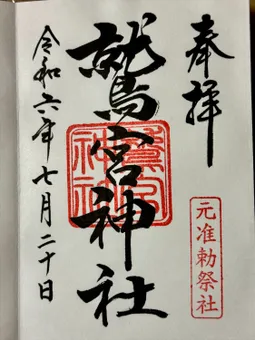 奉拝
元准勅祭社
鷲宮神社
鷲宮
神社
令和六年七月二十日